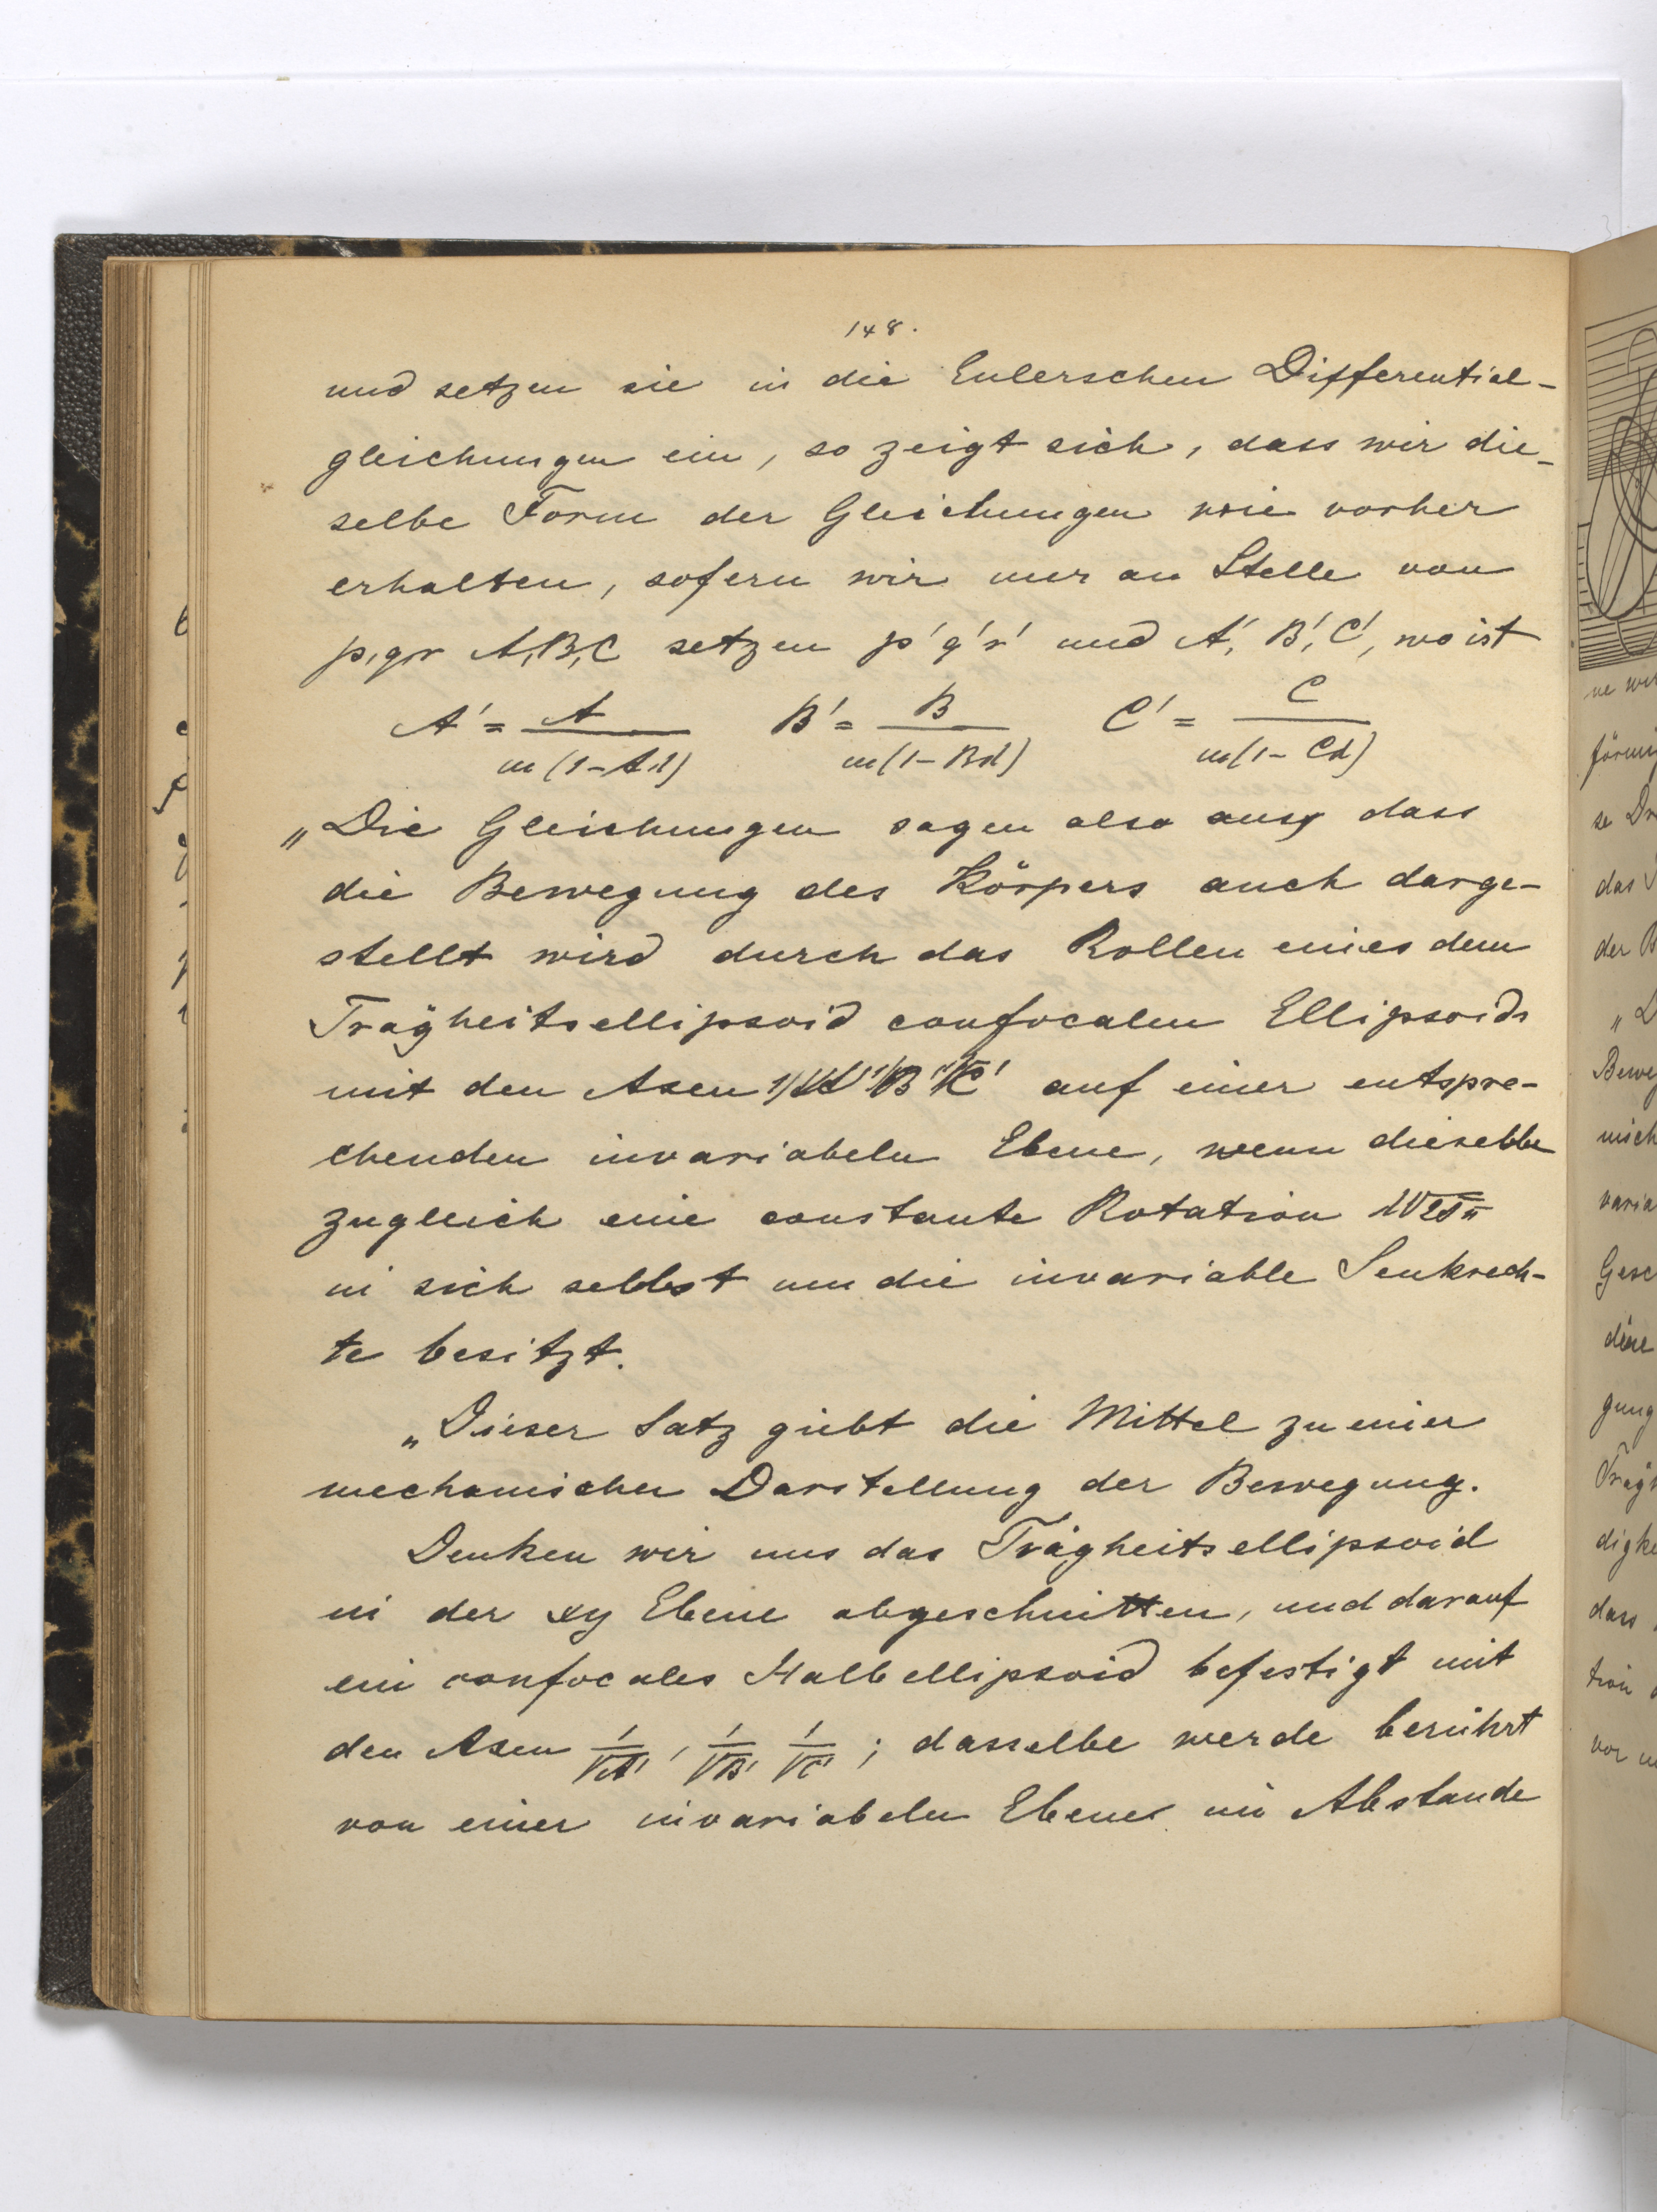 148.
und setzen sie in die Eulerschen Differential-
gleichungen ein, so zeigt sich, dass wir die-
selbe Form der Gleichungen wie vorher
erhalten, sofern wir nur an Stelle von
p,q,r A,B,C setzen p' q' r' und A', B', C', wo ist
A' = A / m(1-Aλ)   B' = B / m(1-Bλ)   C' = C / m(1-Cλ)
„Die Gleichungen sagen also aus, dass
die Bewegung des Körpers auch darge-
stellt wird durch das Rollen eines dem
Trägheitsellipsoid confocalen Ellipsoids
mit den Axen 1/√A' 1/√B' 1/√C' auf einer entspre-
chenden invariabeln Ebene, wenn dieselbe
zugleich eine constante Rotation
in sich selbst um die invariable Senkrech-
te besitzt.
„Dieser Satz giebt die Mittel zu einer
mechanischen Darstellung der Bewegung.
Denken wir uns das Trägheitsellipsoid
in der xy Ebene abgeschnitten, und darauf
ein confocales Halbellipsoid befestigt mit
den Axen 1/√A', 1/√B' 1/√C' ; dasselbe werde berührt
von einer invariabeln Ebene im Abstande